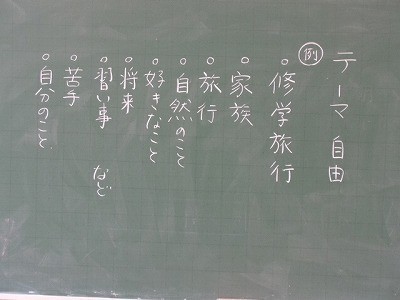 テーマ 自由
例
○修学旅行
○家族
○旅行
○自然のこと
○好きなこと
○将来
○習い事 など
○苦手
○自分のこと、